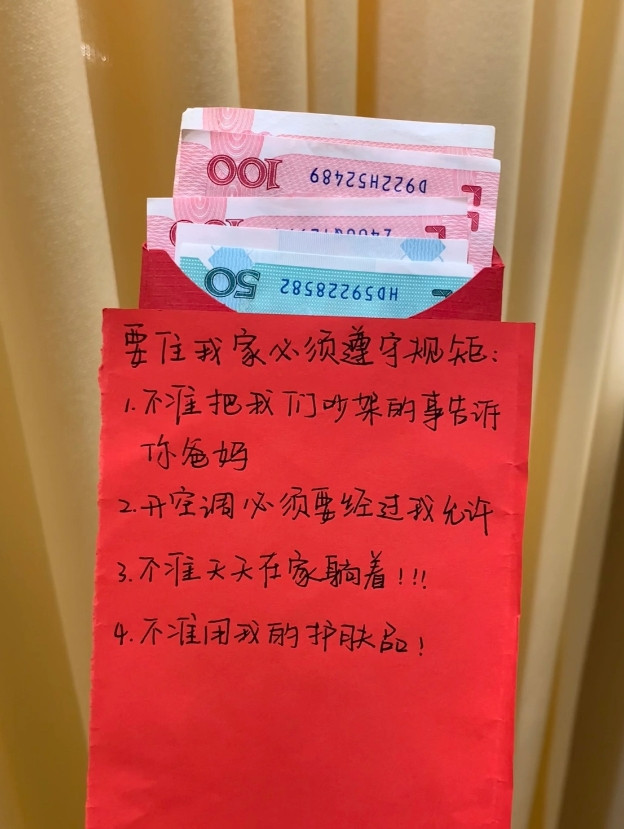 100
D922H52489
100
50
HD59228582
要住我家必须遵守规矩:
1.不准把我们吵架的事告诉
你爸妈
2.开空调必须要经过我允许
3.不准天天在家躺着!!!
4.不准用我的护肤品!